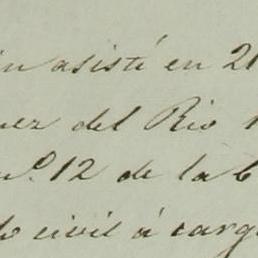 in asistí en 21
uez del Rio
nº. 12 de la b
do civil á carg